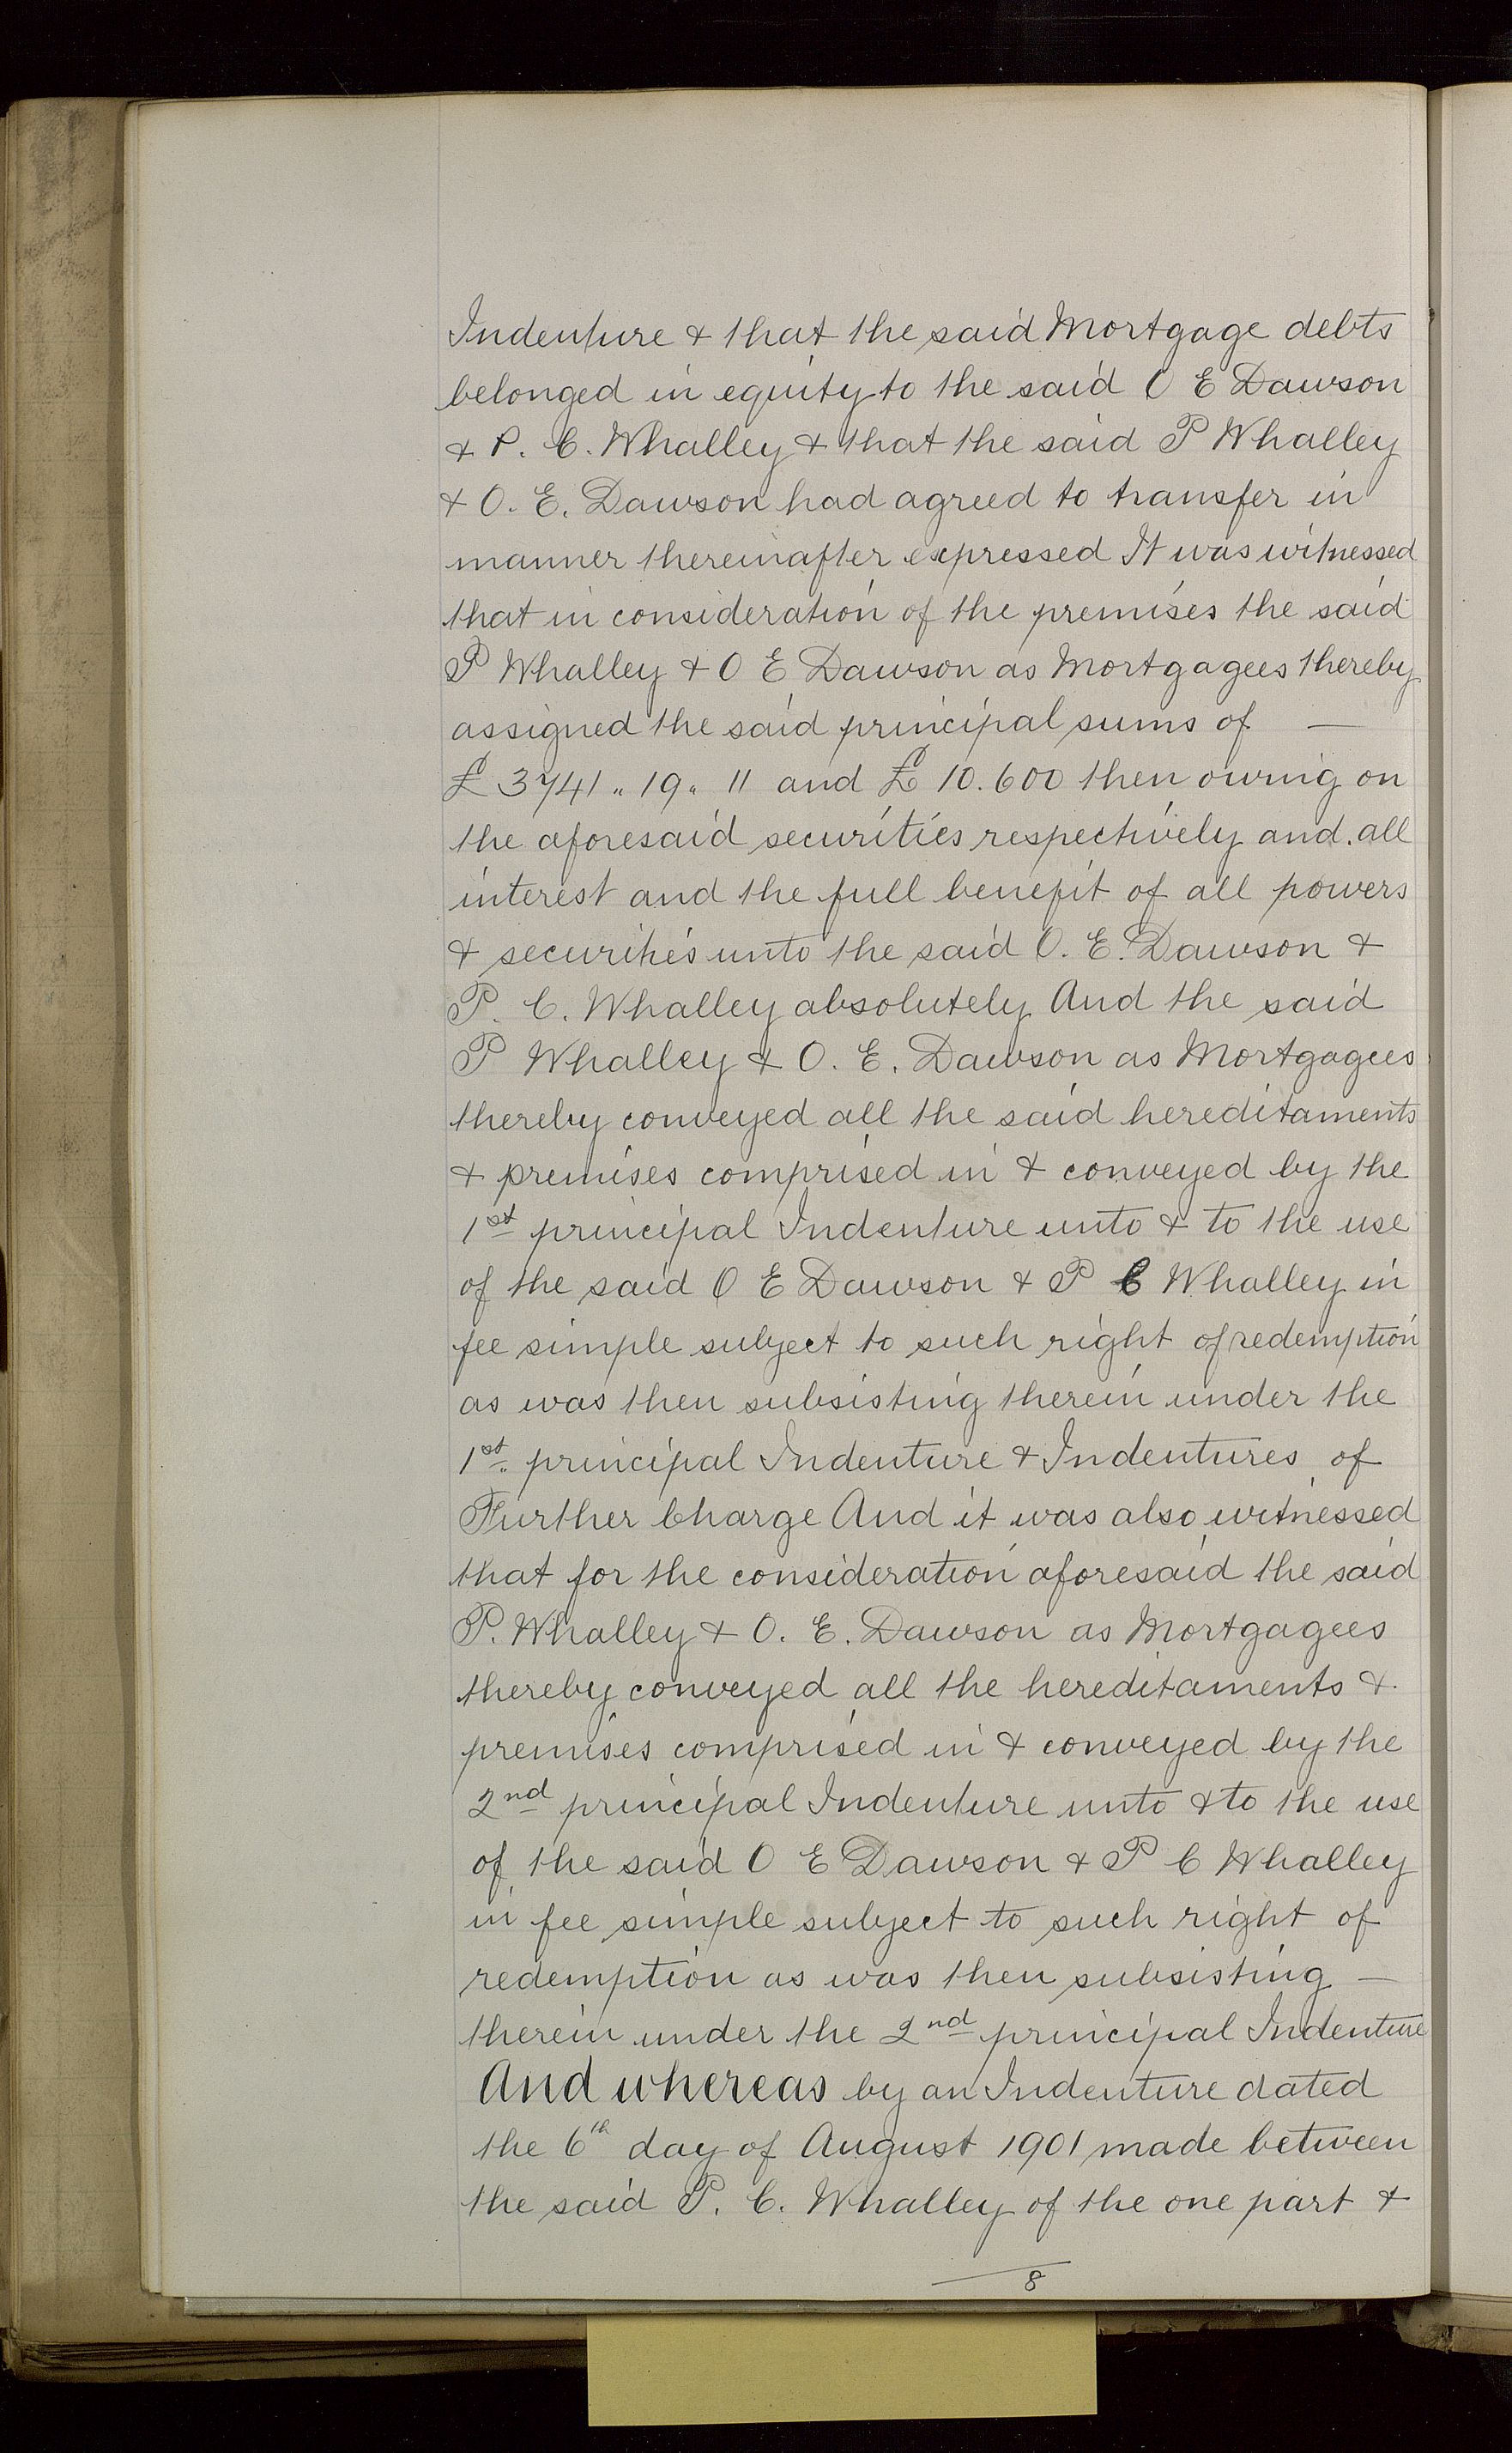 Indenture & that the said Mortgage debts
belonged in equity to the said O E Dawson
& P. C. Whalley & that the said P Whalley
& O. E. Dawson had agreed to transfer in
manner thereinafter expressed It was witnessed
that in consideration of the premises the said
P Whalley & O E Dawson as Mortgagees thereby
assigned the said principal sums of —
£ 3741 „ 19 „ 11 and £ 10.600 then owing on
the aforesaid securities respectively and all
interest and the full benefit of all powers
& securities unto the said O. E. Dawson &
P. C. Whalley absolutely And the said
P Whalley & O. E. Dawson as Mortgagees
thereby conveyed all the said hereditaments
& premises comprised in & conveyed by the
1st principal Indenture unto & to the use
of the said O E Dawson & P C Whalley in
fee simple subject to such right of redemption
as was then subsisting therein under the
1st principal Indenture & Indentures of
Further Charge And it was also witnessed
that for the consideration aforesaid the said
P. Whalley & O. E. Dawson as Mortgagees
thereby conveyed all the hereditaments &
premises comprised in & conveyed by the
2nd principal Indenture unto & to the use
of the said O E Dawson & P C Whalley
in fee simple subject to such right of
redemption as was then subsisting —
therein under the 2nd principal Indenture
And whereas by an Indenture dated
the 6th day of August 1901 made between
the said P. C. Whalley of the one part &
8